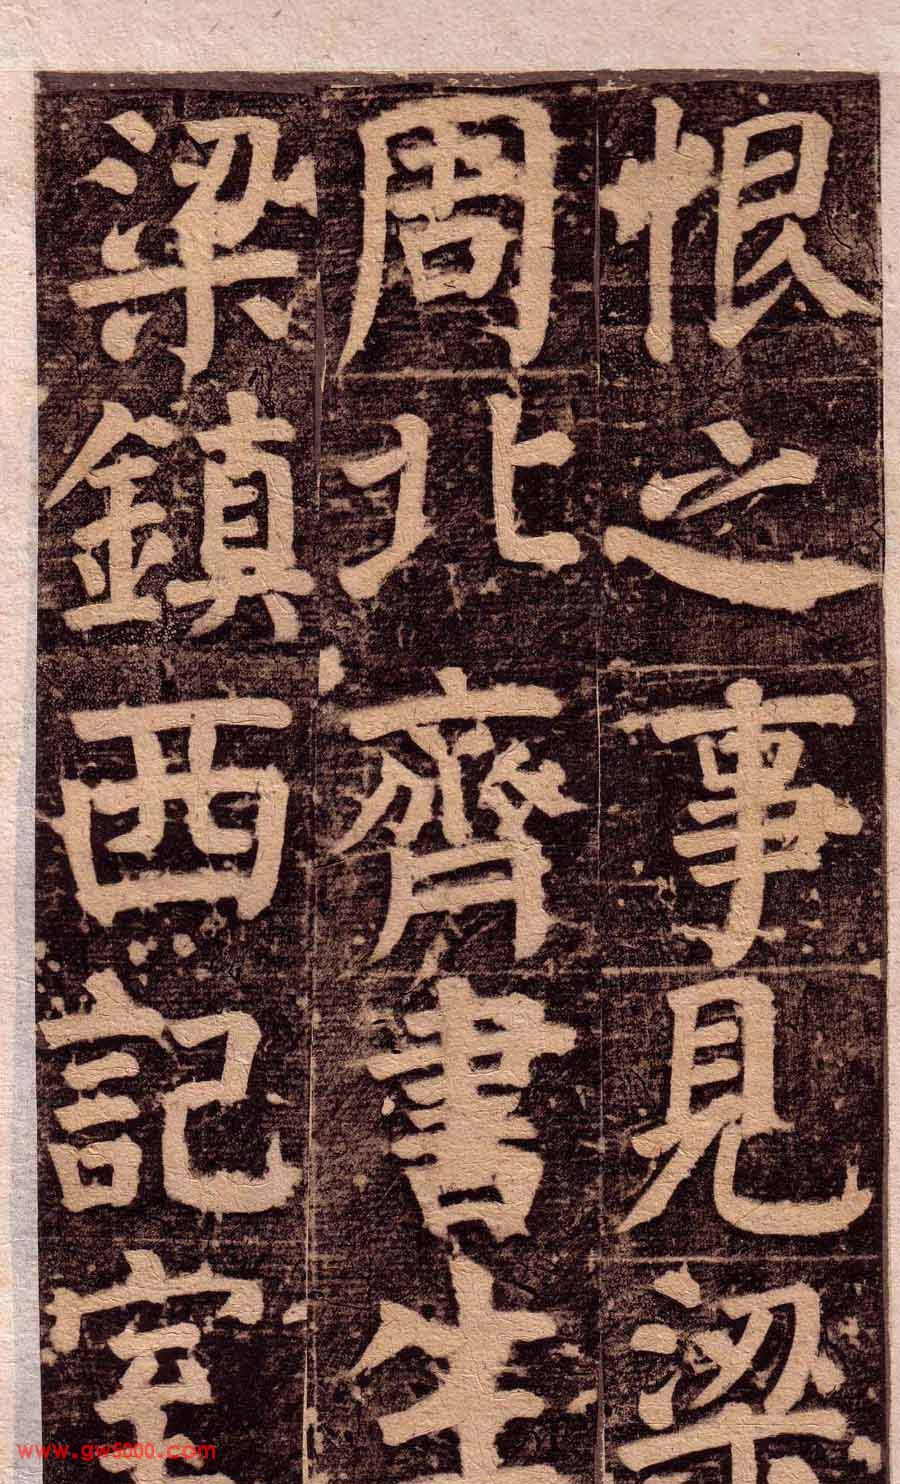 恨之事見梁
周北齊書生
梁鎮西記室
www.gw5000.com